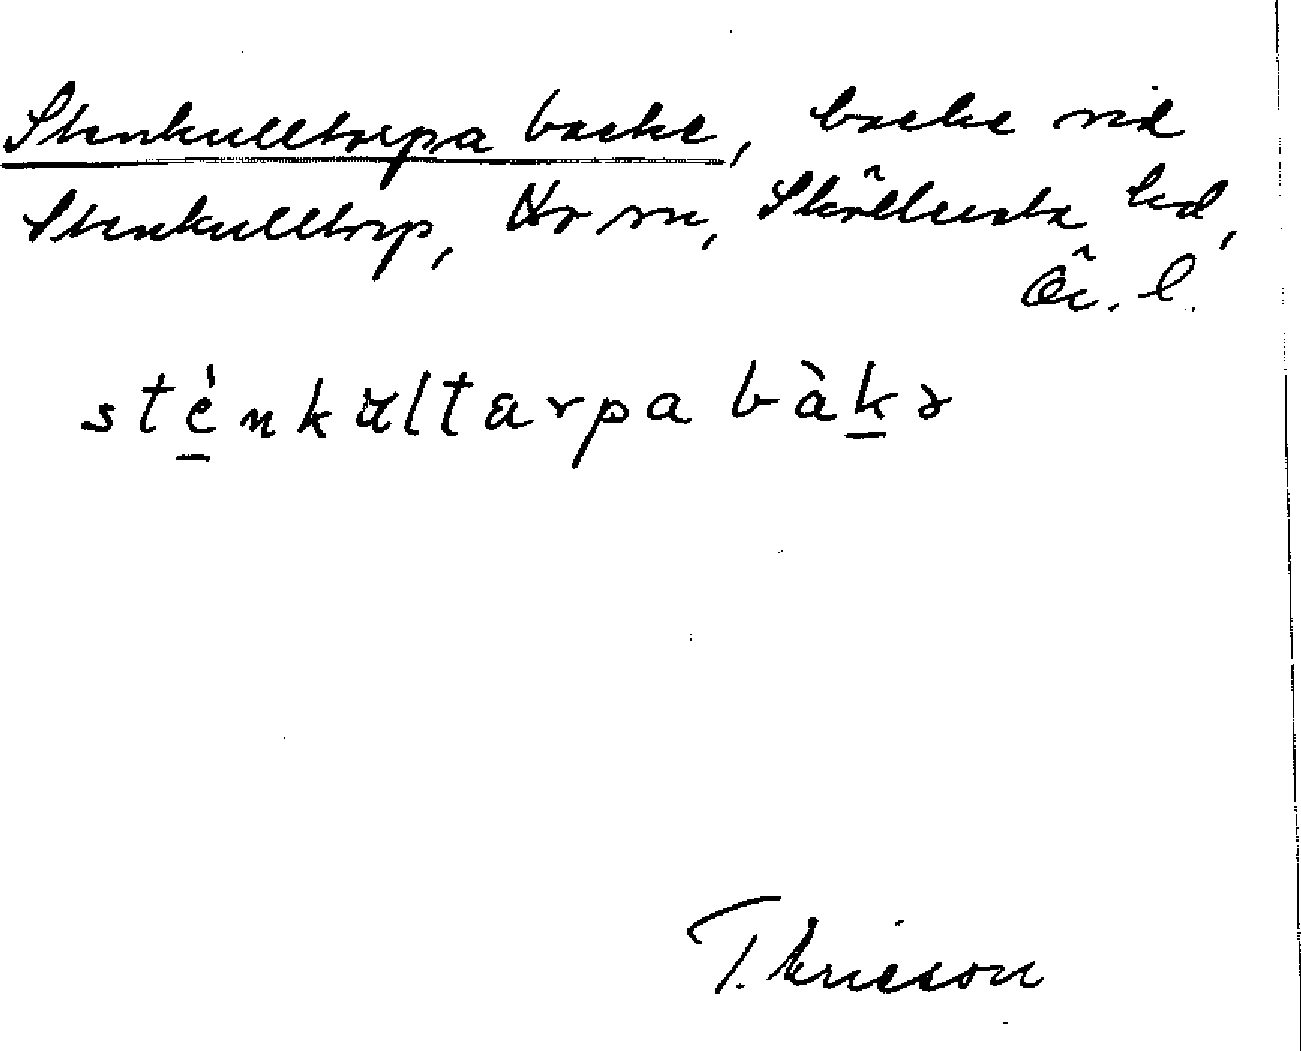 Stenkulltorpa backe, backe vid
Stenkulltorp, sn, Sköllersta hd,
Ör. l.
sténkulltarpa bàkə
T. Ericson